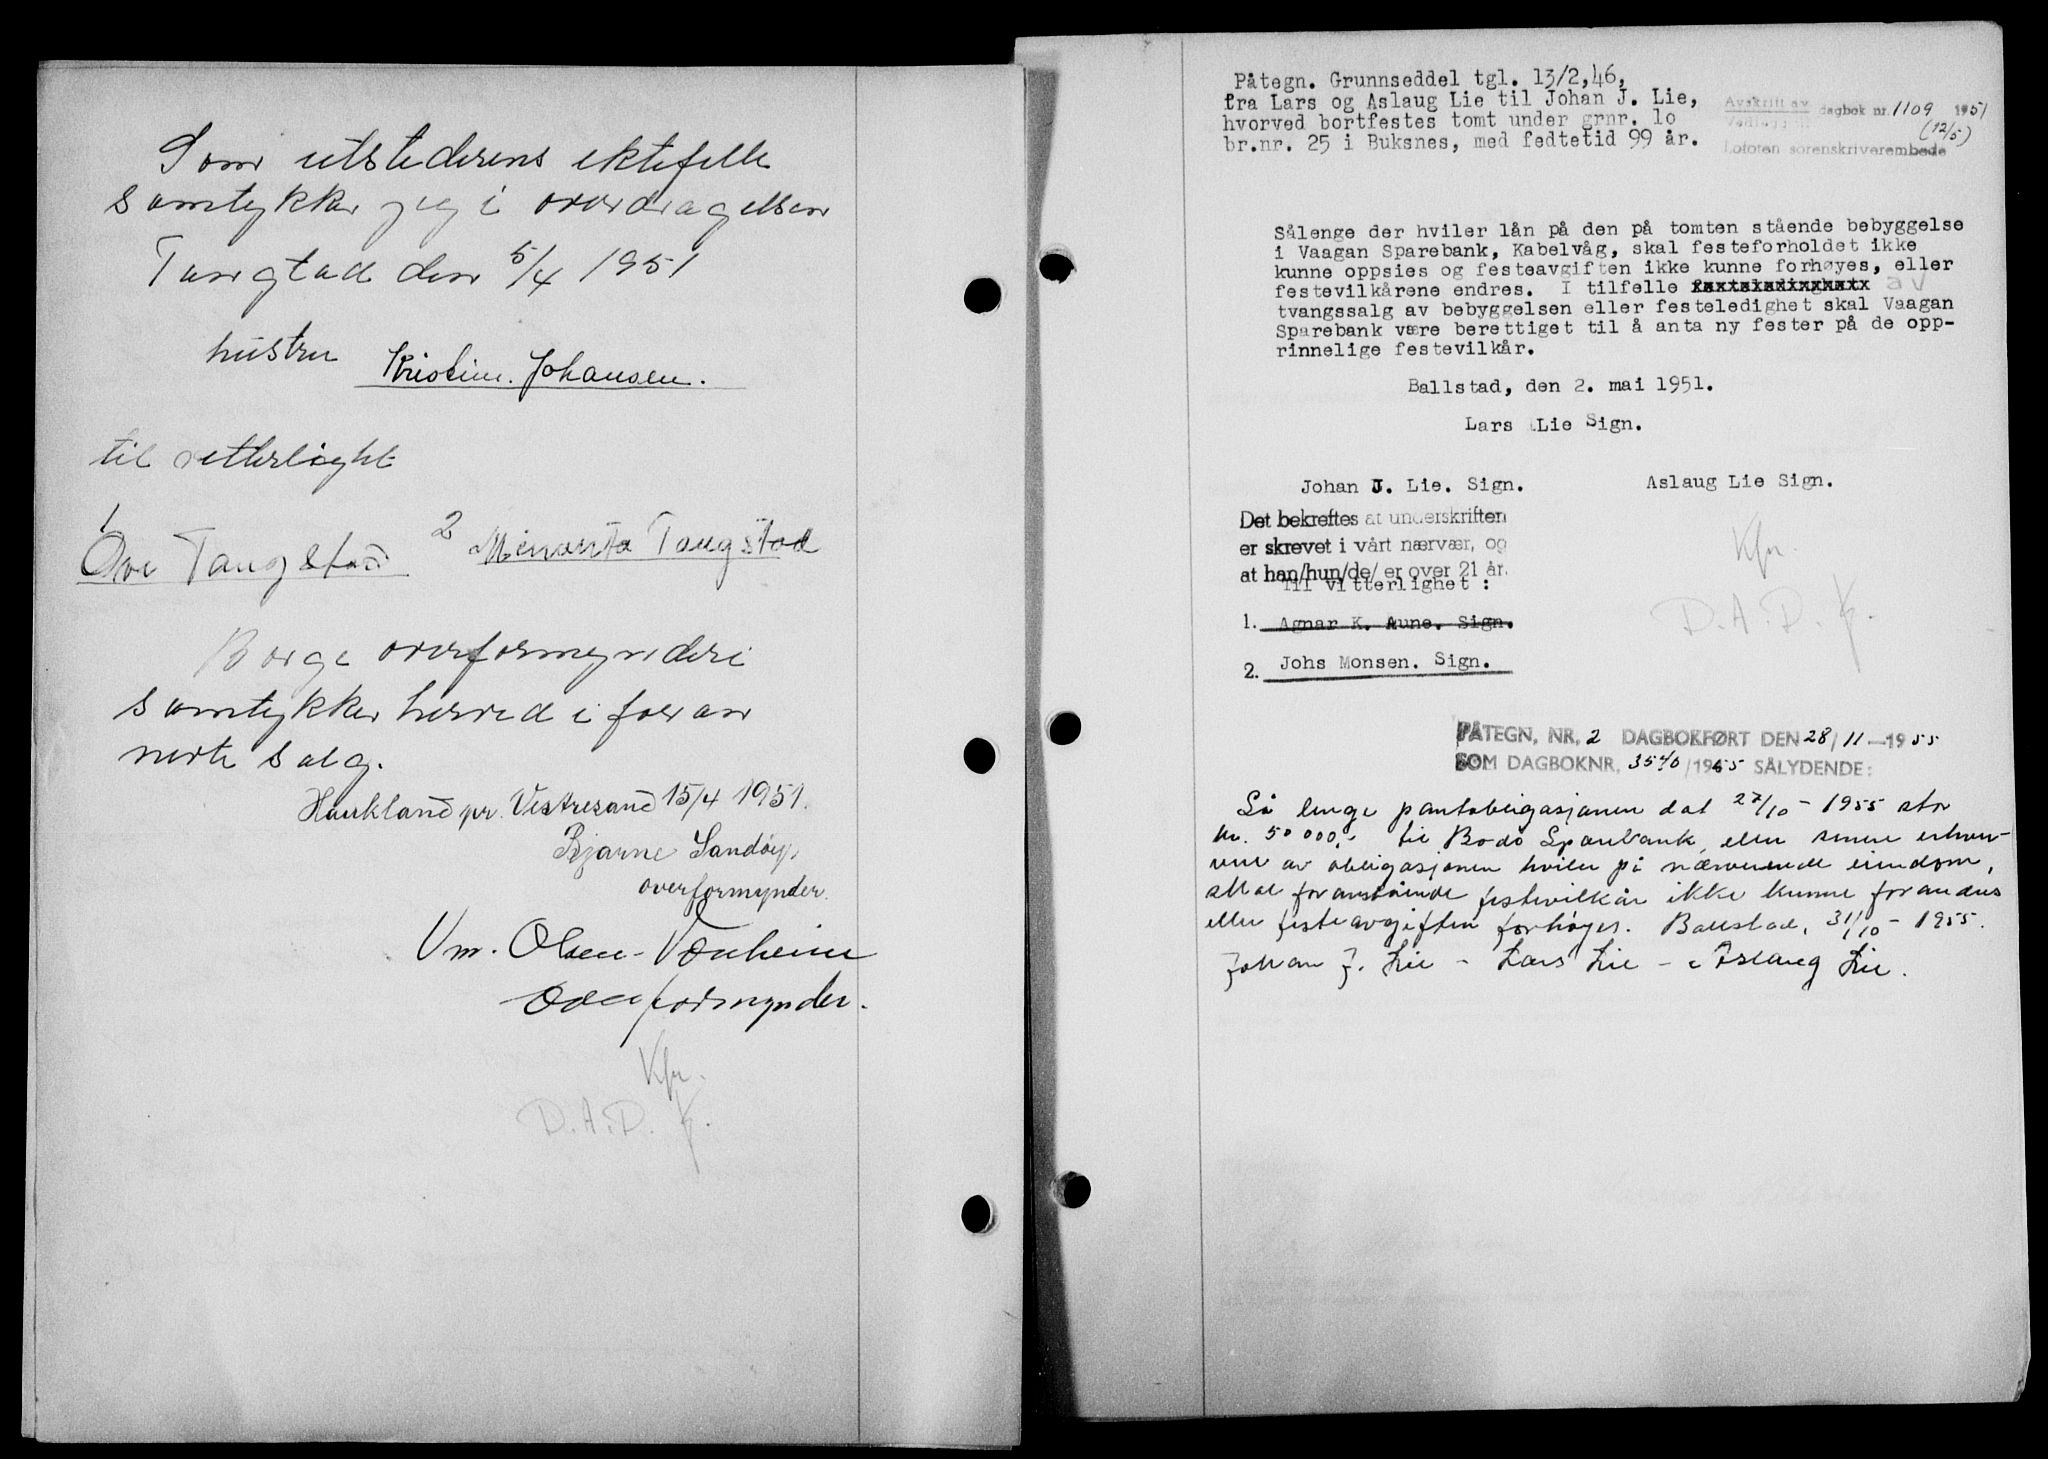 Som utstederens ektefelle
samtykker jeg i overdragelsen
Tangstad den 5/4 1951
hustru Kristine. Johansen.
til vitterlighet
1 Ove Tangstad 2 Tangstad
Borge overformynderi
samtykker herved i foran
nevte salg.
Haukland pr. Vestresand 15/4 1951.
Bjarne Sandøy,
overformynder.
Vm. Olsen-Vonheim
Overformynder.
Kfr.
D.A.D. K.
Påtegn. Grunnseddel tgl. 13/2,46,
fra Lars og Aslaug Lie til Johan J. Lie,
hvorved bortfestes tomt under grnr. lo
br.nr. 25 i Buksnes, med fedtetid 99 år.
Avskrift av dagbok nr. 1109 1951
Vedlegg (12/5)
Lofoten sorenskriverembede
Sålenge der hviler lån på den på tomten stående bebyggelse
i Vaagan Sparebank, Kabelvåg, skal festeforholdet ikke
kunne oppsies og festeavgiften ikke kunne forhøyes, eller
festevilkårene endres. I tilfelle av
tvangssalg av bebyggelsen eller festeledighet skal Vaagan
Sparebank være berettiget til å anta ny fester på de opp-
rinnelige festevilkår.
Ballstad, den 2. mai 1951.
Lars Lie Sign.
Johan J. Lie. Sign. Aslaug Lie Sign.
Det bekreftes at underskriften
er skrevet i vårt nærvær, og
at han/hun/de/ er over 21 år.
Til vitterlighet :
1. Agnar K. Aune. Sign.
2. Johs Monsen. Sign.
Kfr.
D.A.D. K.
PÅTEGN, NR, 2 DAGBOKFØRT DEN 28/11-1955
SOM DAGBOKNR, 3540/1955 SÅLYDENDE:
Så lenge pantobligasjonen dat 27/10-1955 stor
kr. 50 000,- til Bodø Sparebank, eller senere erhver-
vere av obligasjonen hviler på nærværende eiendom,
skal foranstående festevilkår ikke kunne forandres
eller festeavgiften forhøyes. Ballstad, 31/10-1955.
Johan J. Lie - Lars Lie - Aslaug Lie.